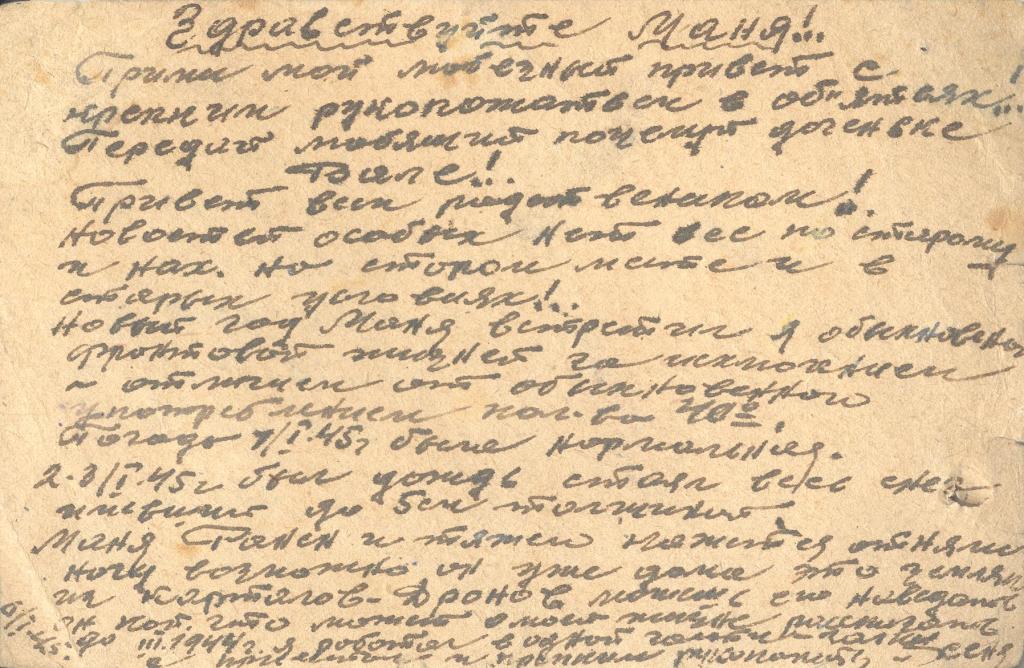 Здравствуйте Маня!..
Прими мой любезный привет с
крепким рукопожатием в об'ятьях...!
Передай любящий поцелуй доченьке
Вале!..
Привет всем родственикам!..
Новостей особых нет все по старому
и нах. на старом месте и в
старых условиях!..
Новый год Маня встретил я обыкновеной
фронтовой жизней за исключением
отличием от обыкновенного
употреблением кол-ва 40°.
Погода 1/I.45г была нормальная.
2-3/I.45г был дождь стаял весь снег
имевший до 5см толщиной
Маня Ранен и тяжело кажется отняли
ногу возможно он уже дома это земляк
из Дронов можешь его наведать
он кой что может о моей жизни рассказать
до III.1944г я работал в одной
с приветом и крепким
6/I-45г.